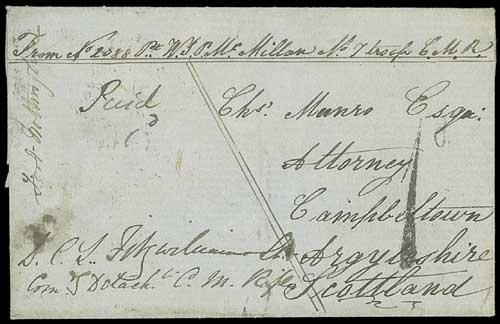 From No 2088 Pt. W. J. P. McMillan No. 7 troop C. M. R.
Paid
Chs. Munro Esqr.
Attorney
Campbeltown
Argyleshire
Scottland
Fitzwilliam
Com. Detacht. C. M. Rifles
Fort Murray